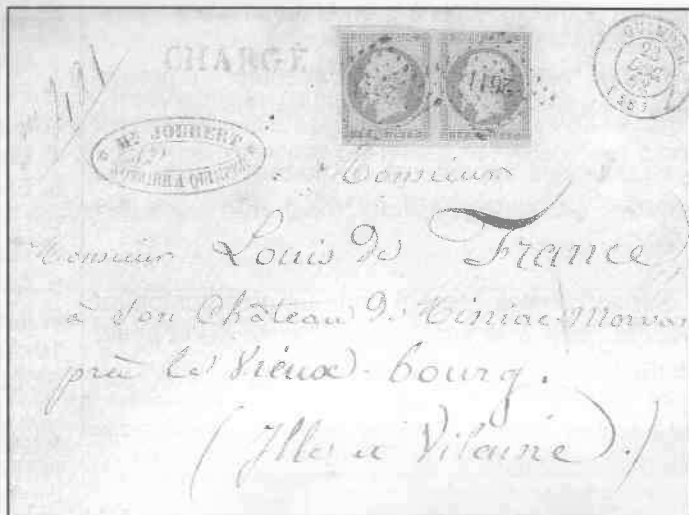 CHARGÉ
491
QUIMPER
23
(28)
2611
Me JOUBERT
NOTAIRE A QUIMPER
Monsieur
Monsieur Louis de France,
à son Château de Miniac-Morvan
près le Vieux-bourg.
(Ille et Vilaine).